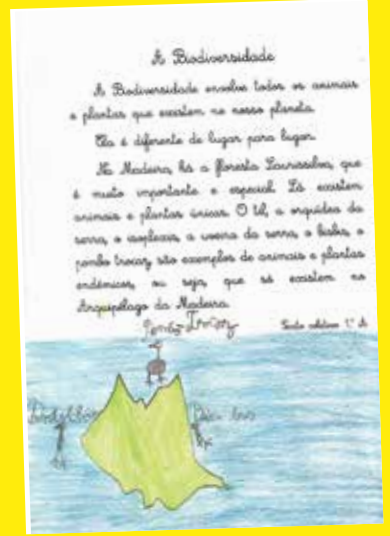 A Biodiversidade
A Biodiversidade envolve todos os animais
e plantas que existem no nosso planeta.
Ela é diferente de lugar para lugar.
Na Madeira, há a floresta Laurissilva, que
é muito importante e especial. Lá existem
animais e plantas únicas. O til, a orquídea da
serra, o isoplexis, a uveira da serra, o bisbis, o
pombo trocaz são exemplos de animais e plantas
endémicos, ou seja, que só existem no
Arquipélago da Madeira.
Pombo Trocaz
Texto coletivo 1.º A